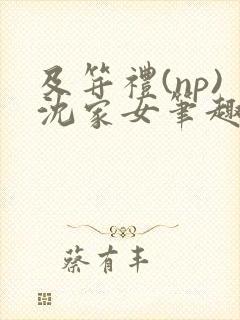 及笄禮(np)
沈家女筆趣
蔡有丰